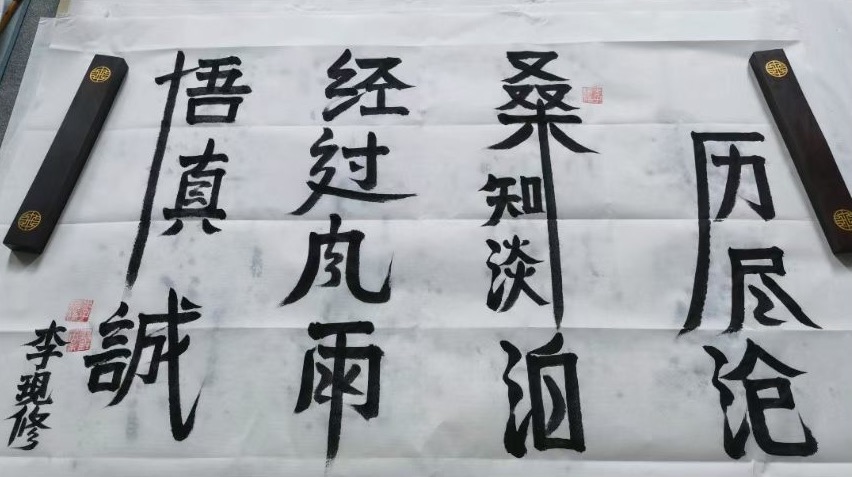 历尽沧
桑知淡泊
经过风雨
悟真誠
李现修